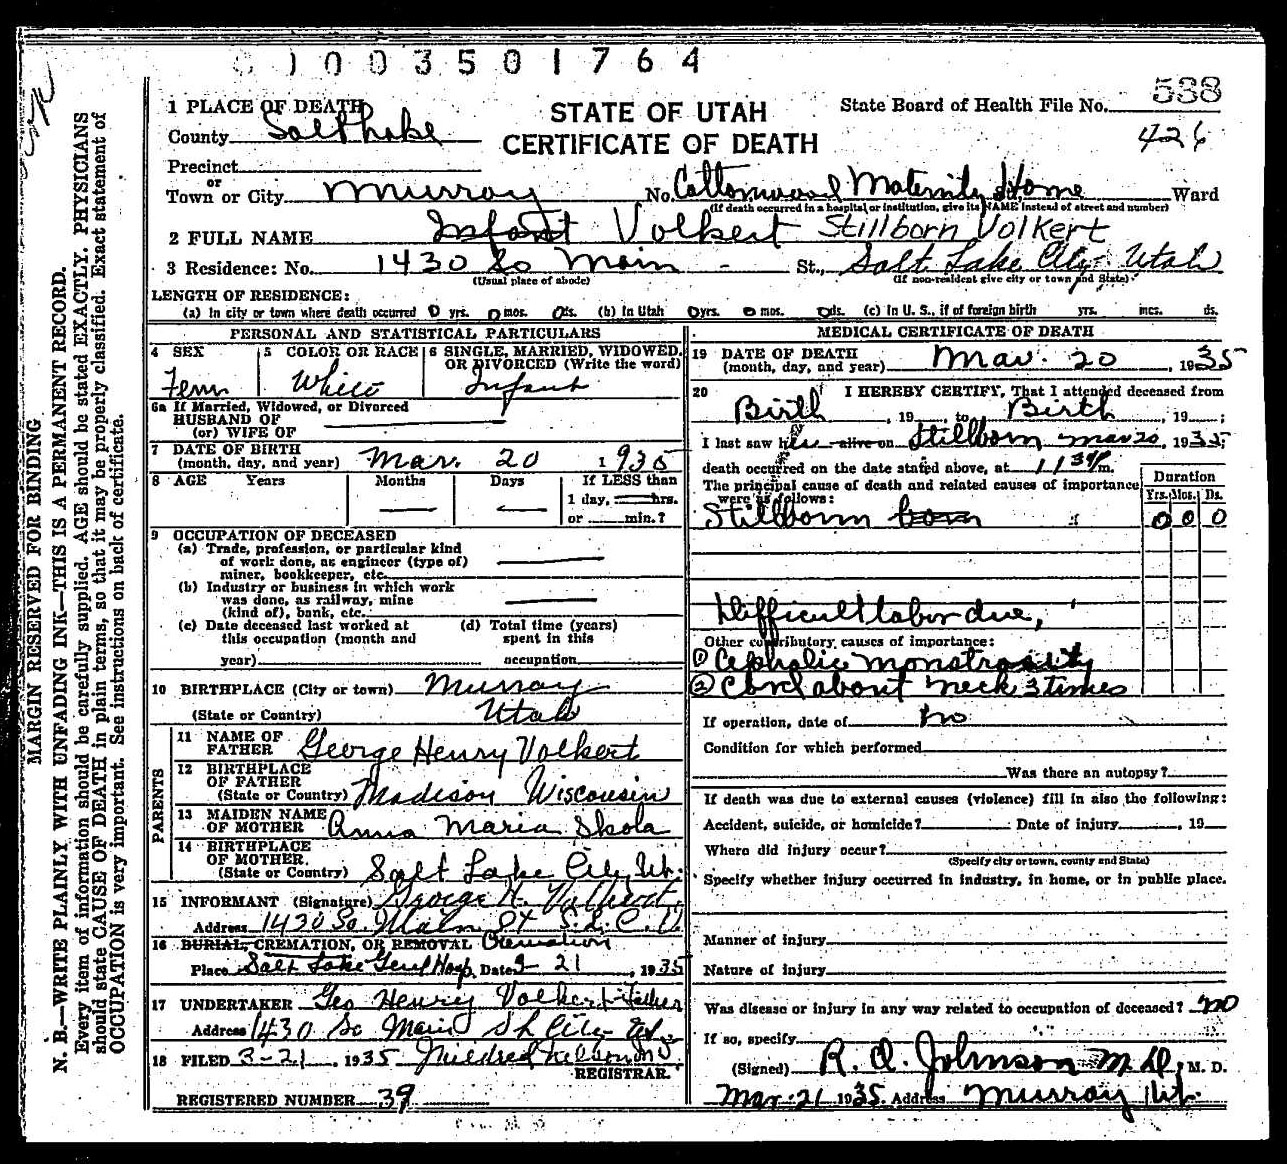 1003501764
1 PLACE OF DEATH
STATE OF UTAH
CERTIFICATE OF DEATH
State Board of Health File No. 538
426
County Salt Lake
Precinct
or
Town or City Murray No. Cottonwood Maternity Home St., Ward
(If death occurred in a hospital or institution, give its NAME instead of street and number)
2 FULL NAME Infant Volkert Stillborn Volkert
3 Residence: No. 1430 So Main - St., Salt Lake City Utah
(Usual place of abode) (If non-resident give city or town and State)
LENGTH OF RESIDENCE:
(a) In city or town where death occurred 0 yrs. 0 mos. 0 ds. (b) In Utah 0 yrs. 0 mos. 0 ds. (c) In U. S., if of foreign birth yrs. mos. ds.
PERSONAL AND STATISTICAL PARTICULARS
4 SEX 5 COLOR OR RACE 6 SINGLE, MARRIED, WIDOWED, OR DIVORCED (Write the word)
Fem White Infant
6a If Married, Widowed, or Divorced
HUSBAND OF
(or) WIFE OF
7 DATE OF BIRTH
(month, day, and year) Mar. 20 1935
8 AGE Years Months Days If LESS than
1 day, hrs.
or min.?
9 OCCUPATION OF DECEASED
(a) Trade, profession, or particular kind
of work done, as engineer (type of)
miner, bookkeeper, etc.
(b) Industry or business in which work
was done, as railway, mine
(kind of), bank, etc.
(c) Date deceased last worked at
this occupation (month and
year)
(d) Total time (years)
spent in this
occupation
10 BIRTHPLACE (City or town) Murray
(State or Country) Utah
PARENTS
11 NAME OF
FATHER George Henry Volkert
12 BIRTHPLACE
OF FATHER
(State or Country) Madison Wisconsin
13 MAIDEN NAME
OF MOTHER Anna Maria Skola
14 BIRTHPLACE
OF MOTHER
(State or Country) Salt Lake City Ut.
15 INFORMANT (Signature) George H. Volkert
Address 1430 So. Main St S.L.C. U
16 BURIAL, CREMATION, OR REMOVAL Cremation
Place Salt Lake Genl Hosp. Date 3-21, 1935
17 UNDERTAKER Geo Henry Volkert-Father
Address 1430 So Main S L City Ut.
18 FILED 3-21, 1935 Mildred Nelson
REGISTRAR.
REGISTERED NUMBER 39
MEDICAL CERTIFICATE OF DEATH
19 DATE OF DEATH
(month, day, and year) Mar. 20, 1935
20 I HEREBY CERTIFY, That I attended deceased from
Birth, 19 to Birth, 19 ;
I last saw her alive on Stillborn Mar 20, 1935;
death occurred on the date stated above, at 11 39P m.
The principal cause of death and related causes of importance
were as follows:
Duration
Yrs. Mos. Ds.
Stillborn born 0 0 0
Difficult labor due,
Other contributory causes of importance:
① Cephalic monstrosity
② Cord about neck 3 times
If operation, date of no
Condition for which performed
Was there an autopsy?
If death was due to external causes (violence) fill in also the following:
Accident, suicide, or homicide? Date of injury , 19
Where did injury occur?
(Specify city or town, county and State)
Specify whether injury occurred in industry, in home, or in public place.
Manner of injury
Nature of injury
Was disease or injury in any way related to occupation of deceased? no
If so, specify
(Signed) R. A. Johnson M D, M. D.
Mar. 21 1935. Address Murray Ut.
MARGIN RESERVED FOR BINDING
N. B.—WRITE PLAINLY WITH UNFADING INK—THIS IS A PERMANENT RECORD.
Every item of information should be carefully supplied. AGE should be stated EXACTLY. PHYSICIANS
should state CAUSE OF DEATH in plain terms, so that it may be properly classified. Exact statement of
OCCUPATION is very important. See instructions on back of certificate.